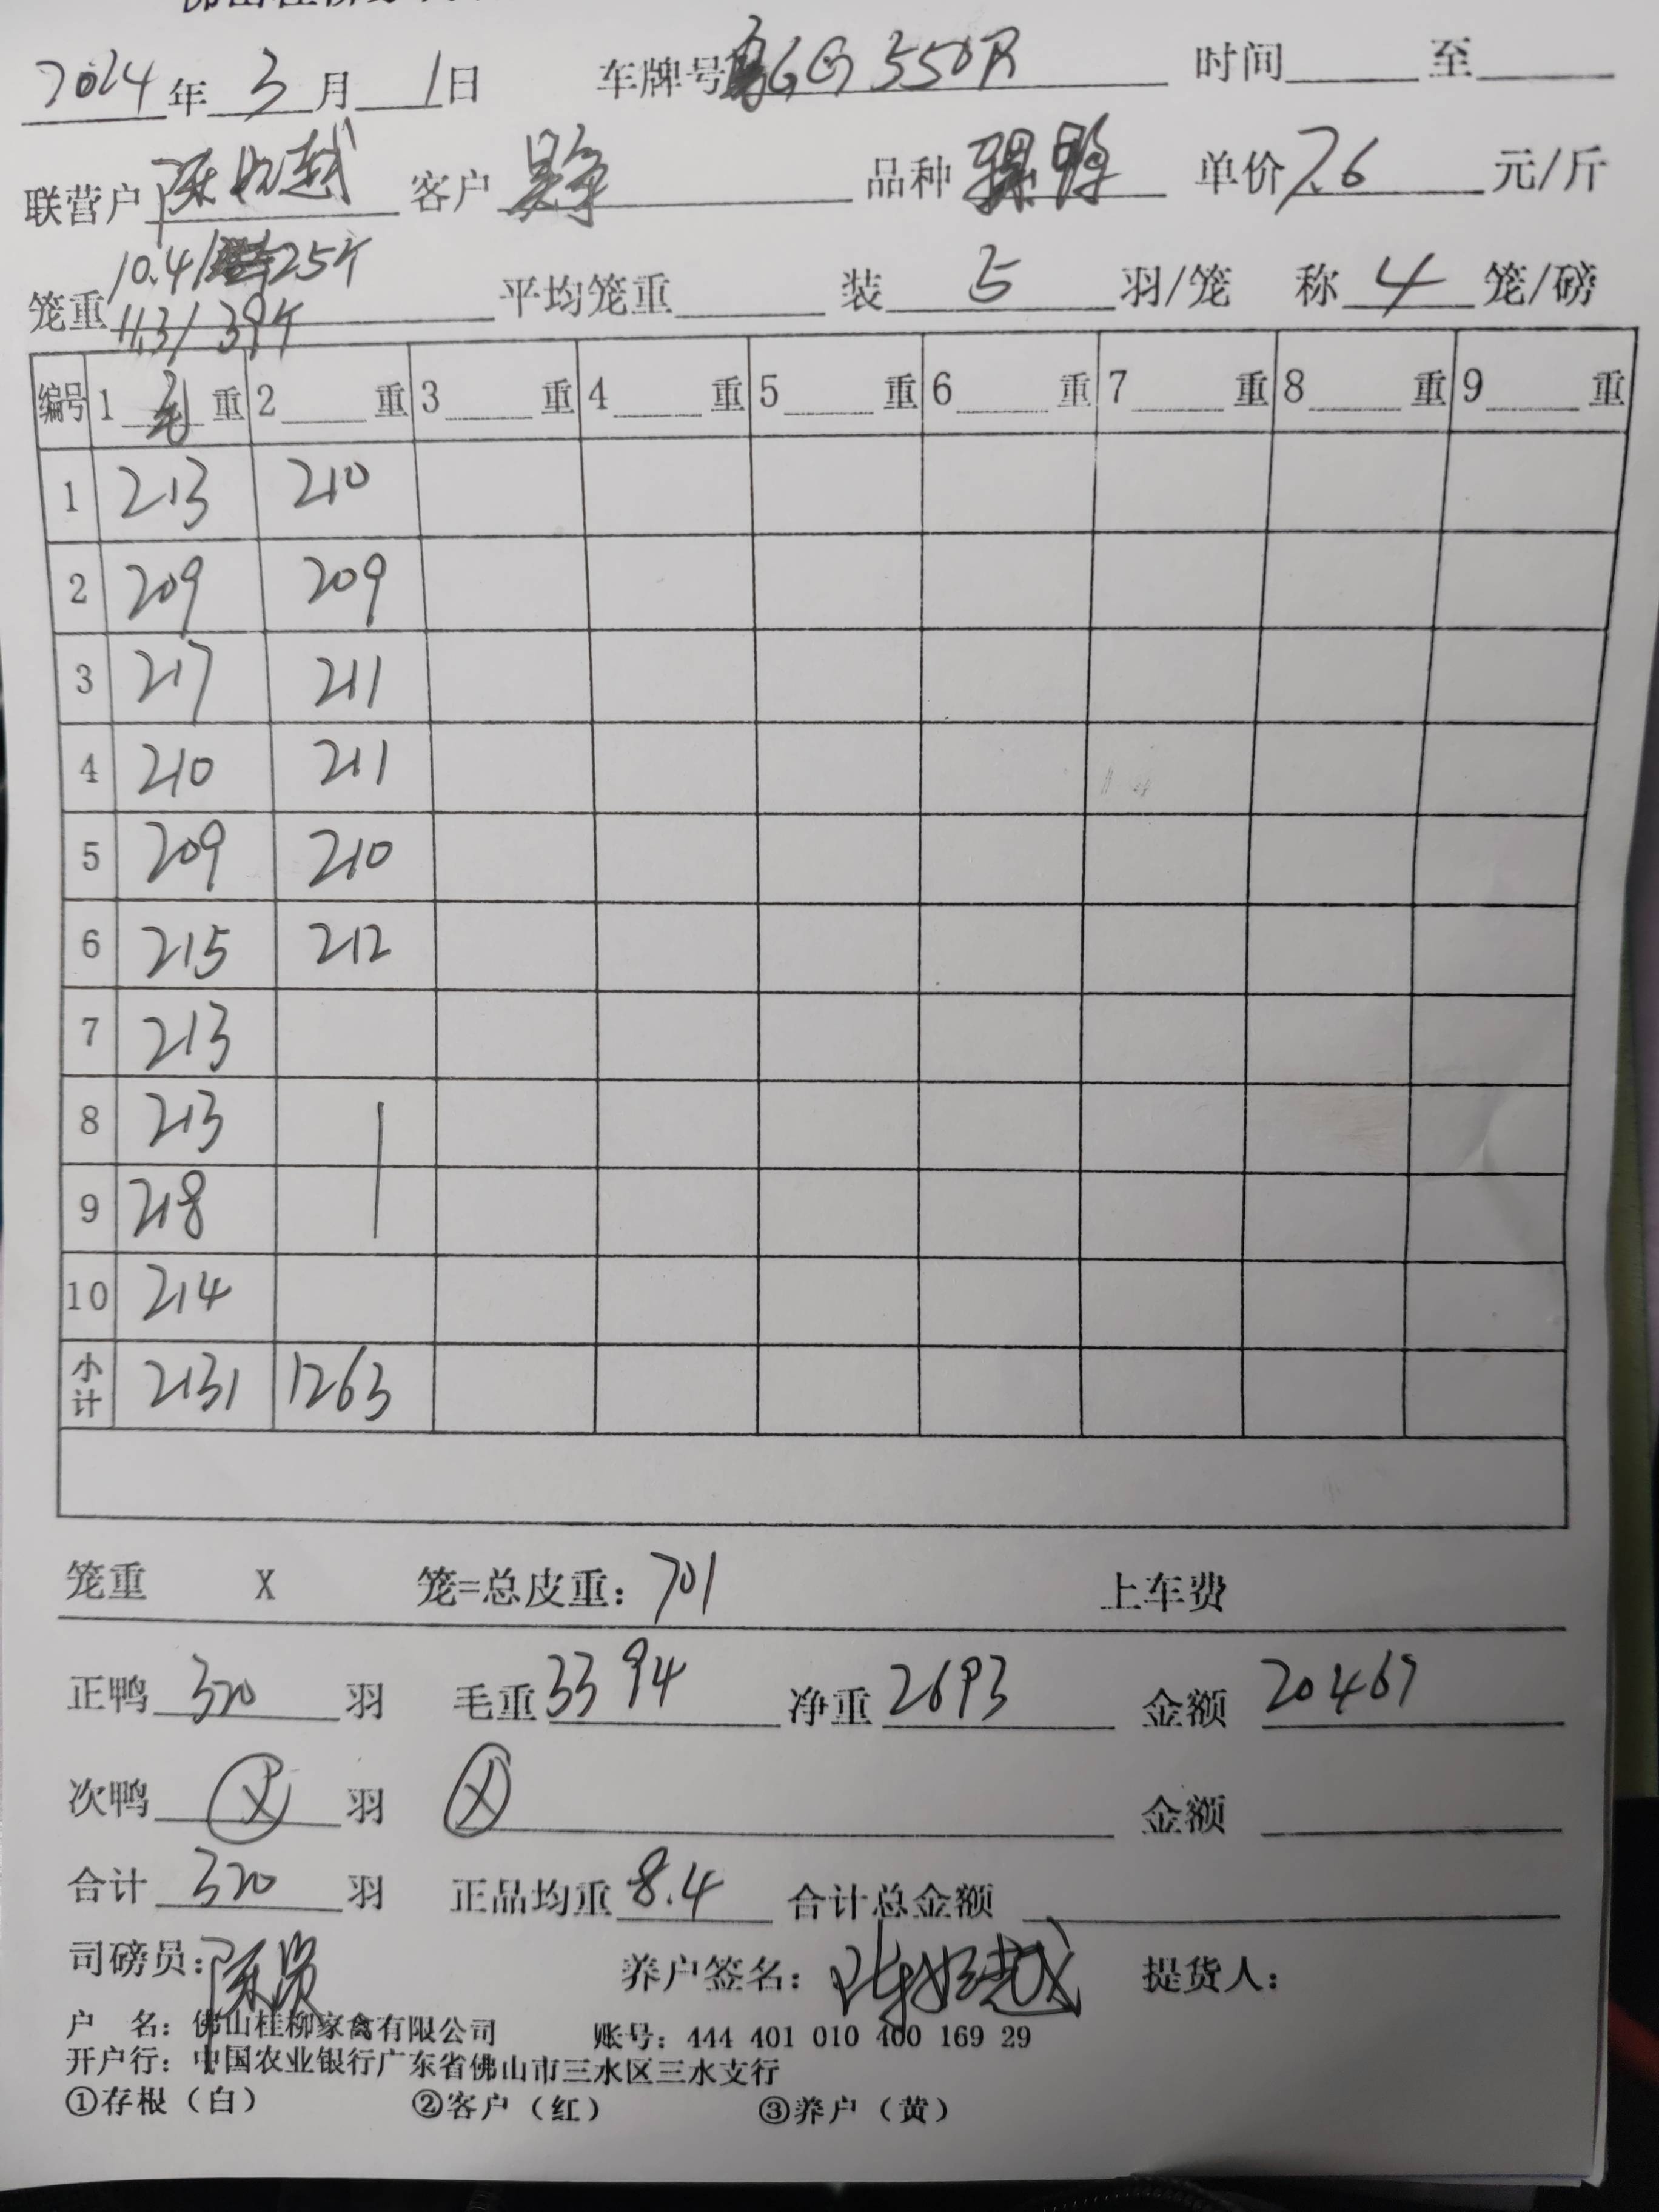 2024年 3月 1日 车牌号 GG550R 时间 至
联营户 陈妃越 客户 品种 骡鸭 单价 7.6 元/斤
笼重 10.4/ 25个 平均笼重 装 5 羽/笼 称 4 笼/磅
11.3/39个
编号 1 毛 重 2 重 3 重 4 重 5 重 6 重 7 重 8 重 9 重
1 213 210
2 209 209
3 217 211
4 210 211
5 209 210
6 215 212
7 213
8 213
9 218
10 214
小计 2131 1263
笼重 X 笼=总皮重: 701 上车费
正鸭 320 羽 毛重 3394 净重 2693 金额 20467
次鸭 Ⓧ 羽 Ⓧ 金额
合计 320 羽 正品均重 8.4 合计总金额
司磅员: 养户签名: 提货人:
户 名: 佛山桂柳家禽有限公司 账号: 444 401 010 400 169 29
开户行: 中国农业银行广东省佛山市三水区三水支行
①存根(白) ②客户(红) ③养户(黄)